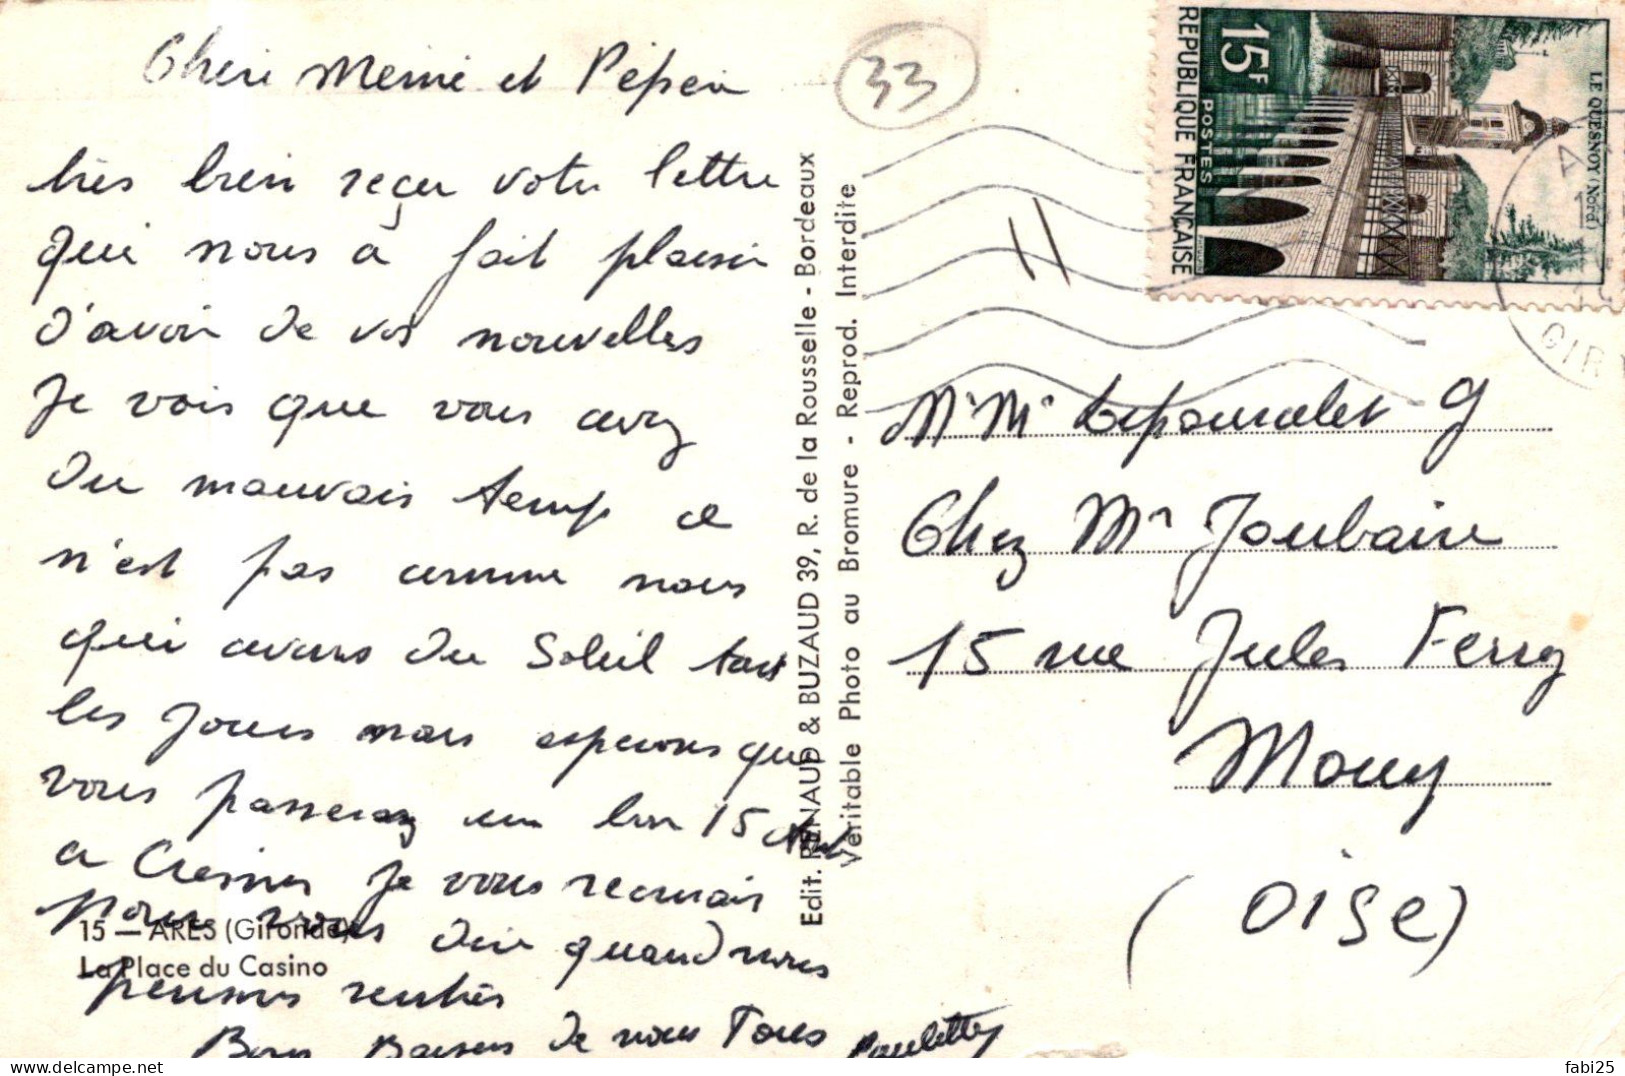 Chère Mémé et Pépère
très bien reçu votre lettre
qui nous a fait plaisir
d'avoir de vos nouvelles
Je vois que vous avez
du mauvais temps ce
n'est pas comme nous
qui avons du Soleil tous
les jours mais esperons que
vous passerez un bon 15 Août
a je vous recrirais
pour vous dire quand nous
pensons rentrés
Bons Baisers de nous Tous Paulette
15 — ARES (Gironde)
La Place du Casino
Edit. RENAUD & BUZAUD 39, R. de la Rousselle - Bordeaux
Véritable Photo au Bromure - Reprod. Interdite
33
15F
POSTES
REPUBLIQUE FRANÇAISE
LE QUESNOY (Nord)
GIR
11
Mr Me G
Chez Mr Joubaire
15 rue Jules Ferry
Mouy
(OISE)
fabi25